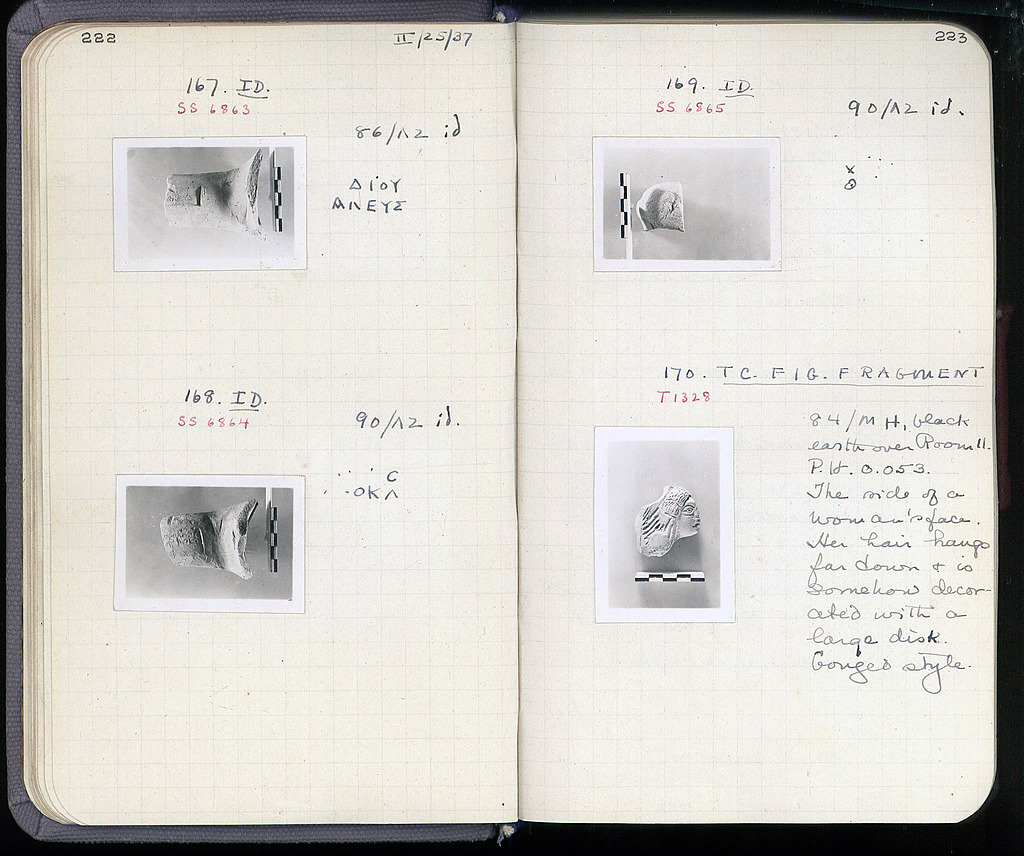 222
II/25/37
167. ID.
SS 6863
86/ΛΖ id
ΔΙΟΥ
ΑΛΕΥΣ
168. ID.
SS 6864
90/ΛΖ id.
.. . C
. ..OKΛ
223
169. ID.
SS 6865
90/ΛΖ id.
x
170. TC. FIG. FRAGMENT
T1328
84/MH, black
earth over Room 11.
P.H. 0.053.
The side of a
woman's face.
Her hair hangs
far down & is
somehow decor-
ated with a
large disk.
Gouged style.